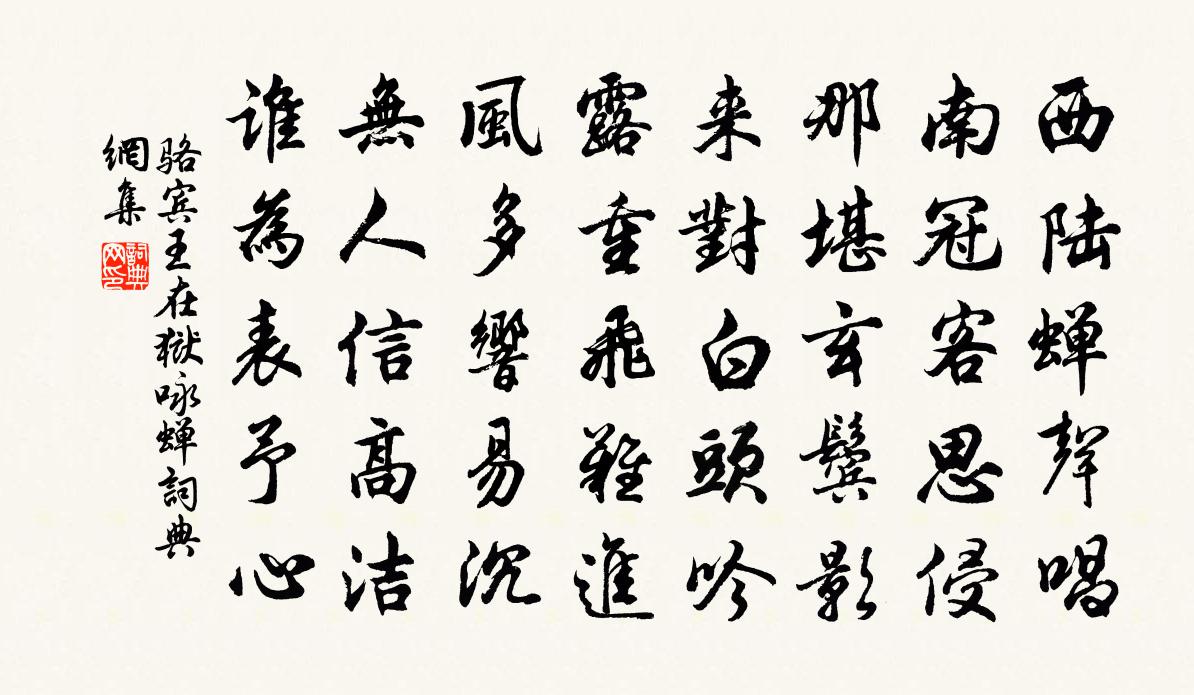 西陆蝉聲唱
南冠客思侵
那堪玄鬓影
来對白頭吟
露重飛難進
風多響易沉
無人信高洁
誰為表予心
骆宾王在獄咏蝉詞典
網集
詞典
网印